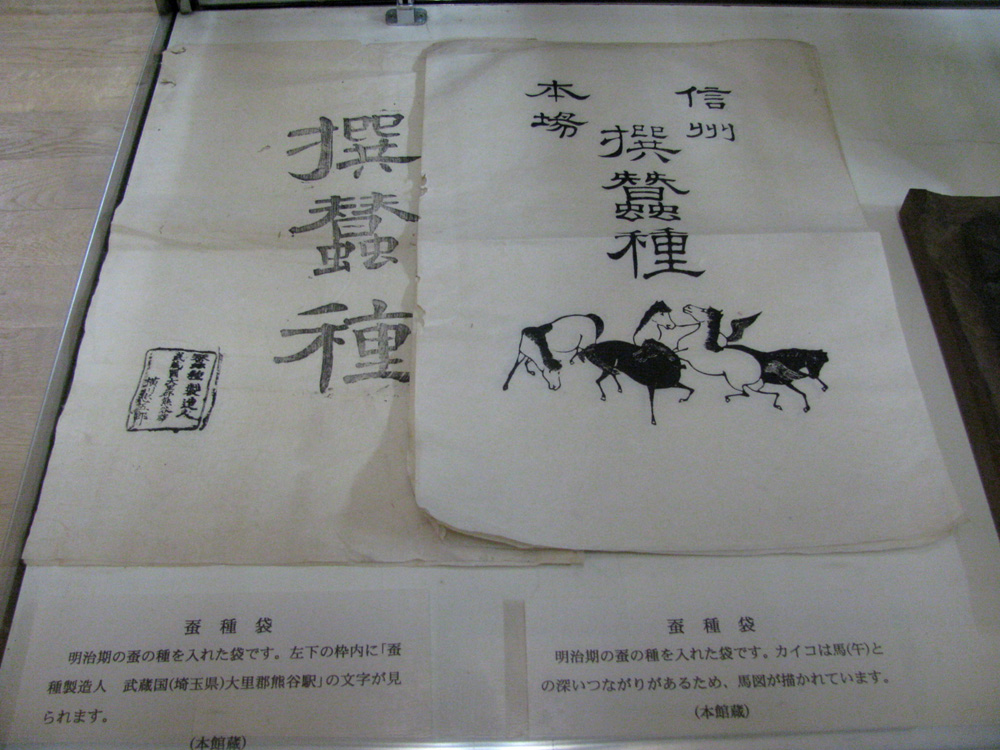 信州
本場
撰蠶種
撰蠶種
製造人
蚕種袋
明治期の蚕の種を入れた袋です。左下の枠内に「蚕
種製造人　武蔵国(埼玉県)大里郡熊谷駅」の文字が見
られます。
(本館蔵)
蚕種袋
明治期の蚕の種を入れた袋です。カイコは馬(午)と
の深いつながりがあるため、馬図が描かれています。
(本館蔵)